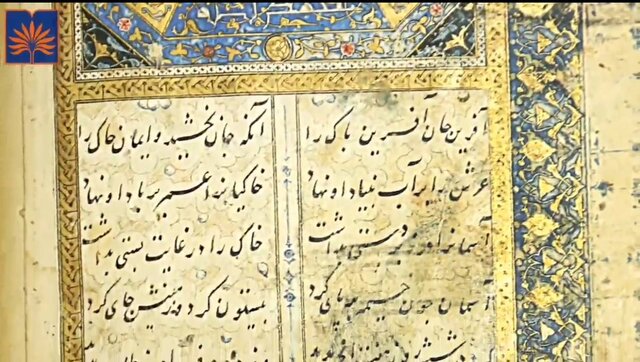 آفرین جان آفرین پاک را
آنکه جان بخشید و ایمان خاک را
عرش را بر آب بنیاد او نهاد
خاکیانرا عمر بر باد او نهاد
آسمانرا در زبردستی بداشت
خاک را در غایت پستی بداشت
آسمان چون خیمه برپای کرد
بیستون کرد و زمینش جای کرد